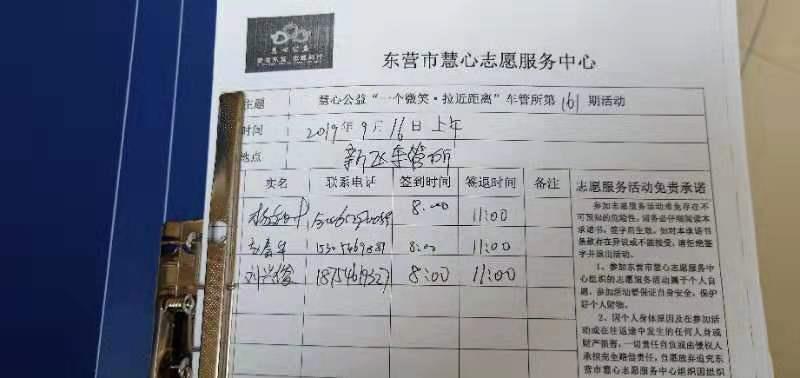 东营市慧心志愿服务中心
主题 慧心公益“一个微笑·拉近距离”车管所第161期活动
时间 2019年9月16日上午
地点 新区车管所
实名 联系电话 签到时间 签退时间 备注
8:00 11:00
8:00 11:00
刘兴俊 8:00 11:00
志愿服务活动免责承诺
参加志愿服务活动难免存在不
可预知的危险性，请务必仔细阅读本
承诺书。签字后生效。如对本承诺书
条款存在异议或不能接受，请拒绝签
字并退出活动。
1、参加东营市慧心志愿服务中
心组织的志愿服务活动属于个人自
愿，参加活动需保证自身安全，保护
好个人财物。
2、因个人身体原因及在参加活
动或在往返途中发生的任何人身或
财产损害，一切责任自负或由侵权人
承担完全赔偿责任，自愿放弃追究东
营市慧心志愿服务中心组织因组织